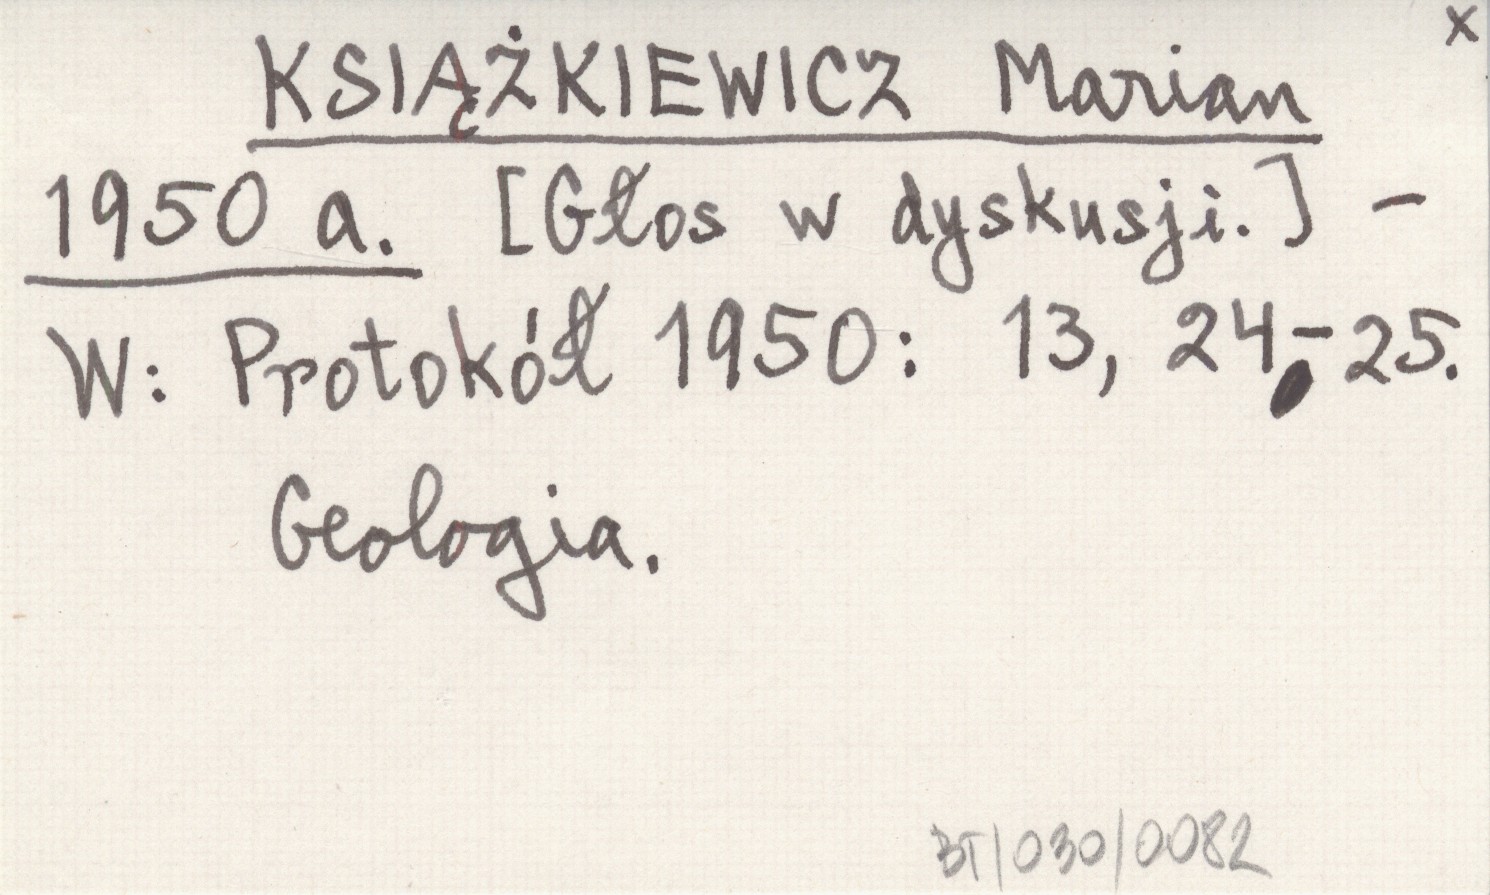 x
KSIĄŻKIEWICZ Marian
1950 a. [Głos w dyskusji.] -
W: Protokół 1950: 13, 24-25.
Geologia.
BT/030/0082